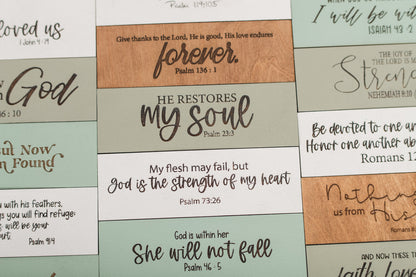 loved us
1 John 4:19
God
46 : 10
ut Now
n Found
you with his feathers,
ngs you will find refuge;
s, will be your
part.
Psalm 91:4
Psalm 119:105
Give thanks to the Lord, He is good, His love endures
forever.
Psalm 136 : 1
HE RESTORES
my soul
Psalm 23:3
My flesh may fail, but
God is the strength of my heart
Psalm 73:26
God is within her
She will not fall
Psalm 46 : 5
I will be wi
ISAIAH 43 : 2
THE JOY OF
THE LORD IS M
Stren
NEHEMIAH 8:10
Be devoted to one an
Honor one another ab
Romans 12
Nothin
us from His
Romans 8:
AND NOW THESE T
faith, hope